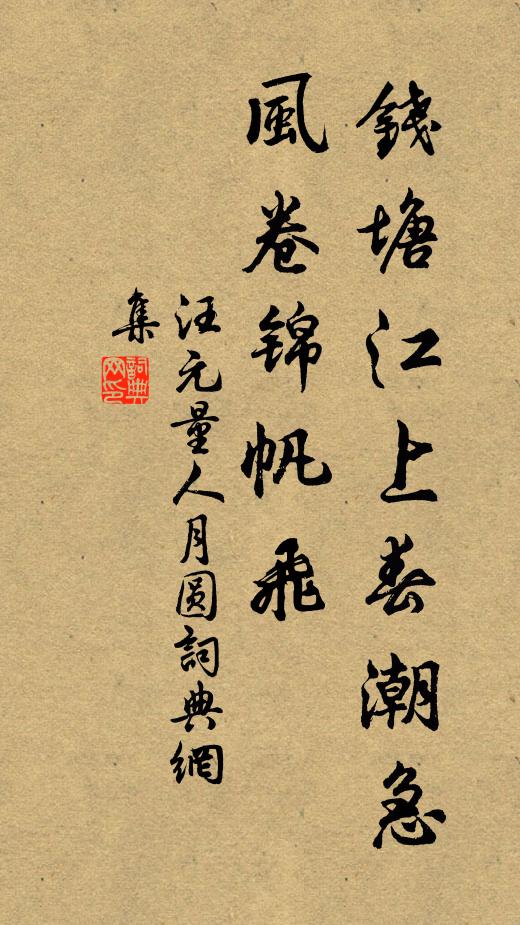 錢塘江上春潮急
風卷錦帆飛
汪元量人月圓詞典網
集
詞典
網印